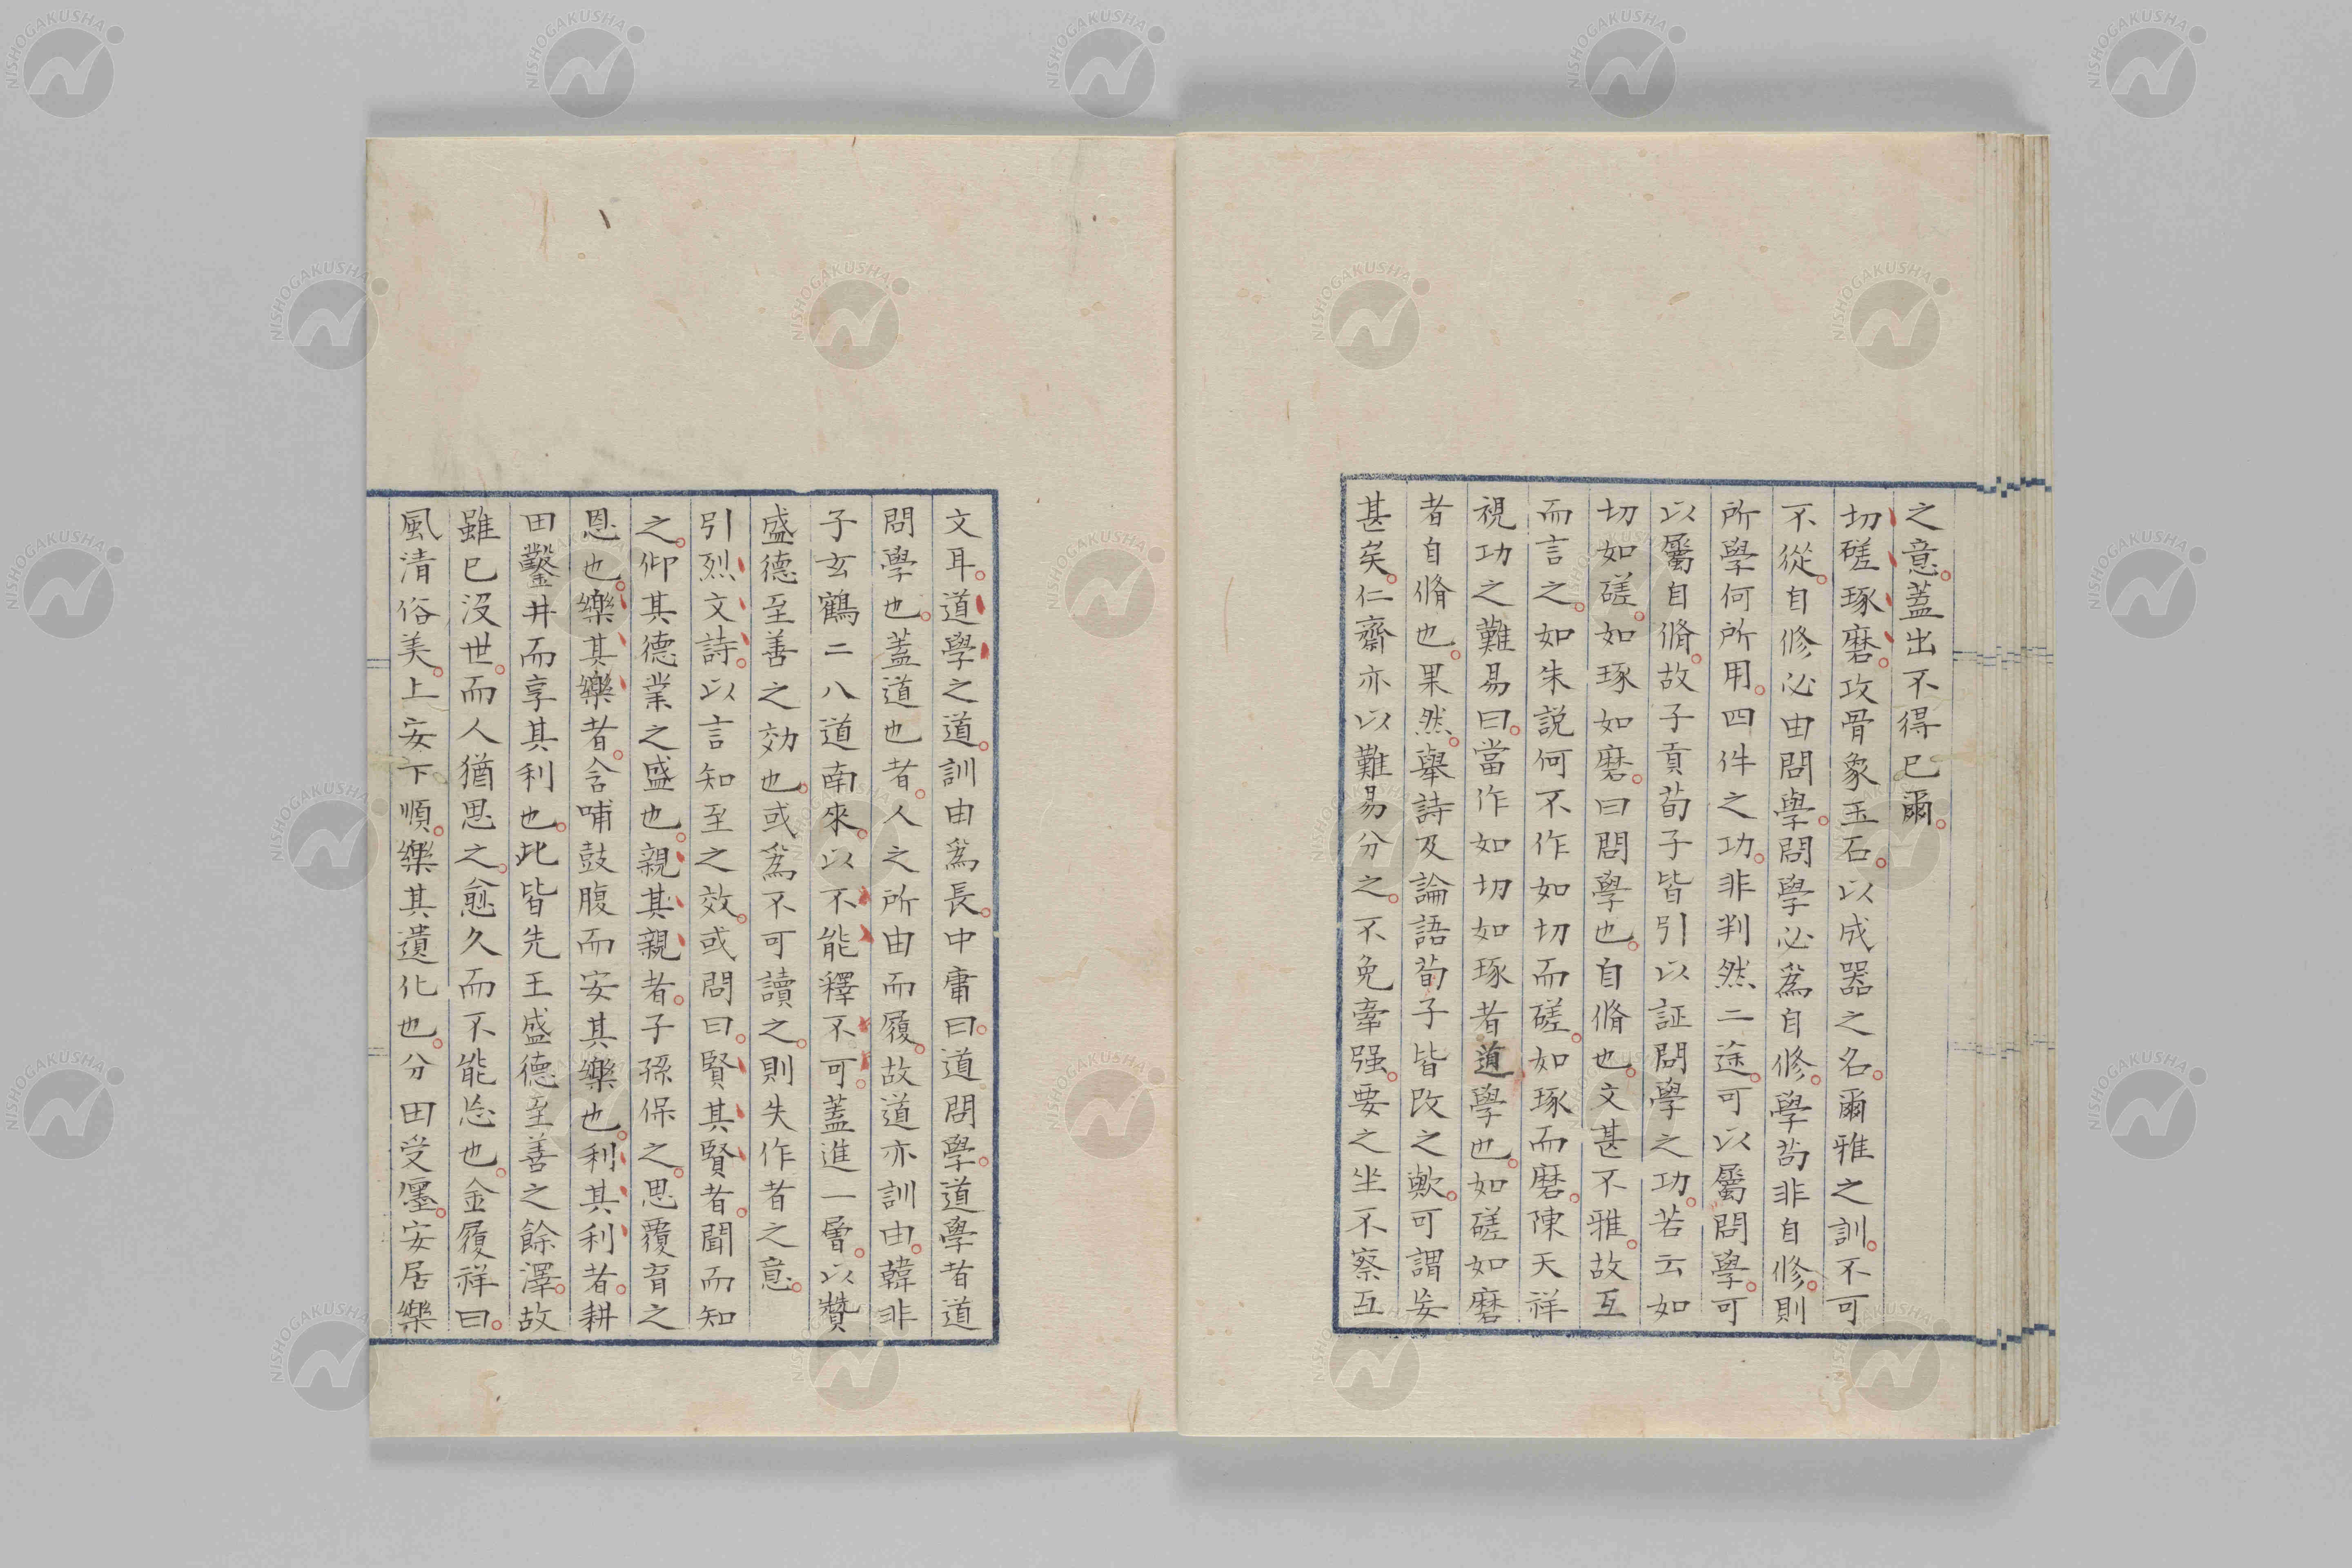 之意。蓋出不得已爾。
切磋琢磨。攻骨象玉石。以成器之名。爾雅之訓。不可
不從。自修必由問學。問學必爲自修。學苟非自修。則
所學何所用。四件之功。非判然二途。可以屬問學。可
以屬自脩。故子貢荀子皆引以証問學之功。若云如
切如磋。如琢如磨。曰問學也。自脩也。文甚不雅。故互
而言之。如朱説何不作如切而磋。如琢而磨。陳天祥
視功之難易曰。當作如切如琢者道學也。如磋如磨
者自脩也。果然。舉詩及論語荀子皆改之歟。可謂妄
甚矣。仁齋亦以難易分之。不免牽强。要之坐不察互
文耳。道學之道。訓由爲長。中庸曰。道問學。道學者道
問學也。蓋道也者。人之所由而履。故道亦訓由。韓非
子玄鶴二八道南來。以不能釋不可。蓋進一層。以贊
盛德至善之効也。或爲不可讀之。則失作者之意。
引烈文詩。以言知至之效。或問曰。賢其賢者。聞而知
之。仰其德業之盛也。親其親者。子孫保之。思覆育之
恩也。樂其樂者。含哺鼓腹而安其樂也。利其利者。耕
田鑿井而享其利也。此皆先王盛德至善之餘澤。故
雖已沒世。而人猶思之。愈久而不能忘也。金履祥曰。
風清俗美。上安下順。樂其遺化也。分田受廛。安居樂
NISHOGAKUSHA